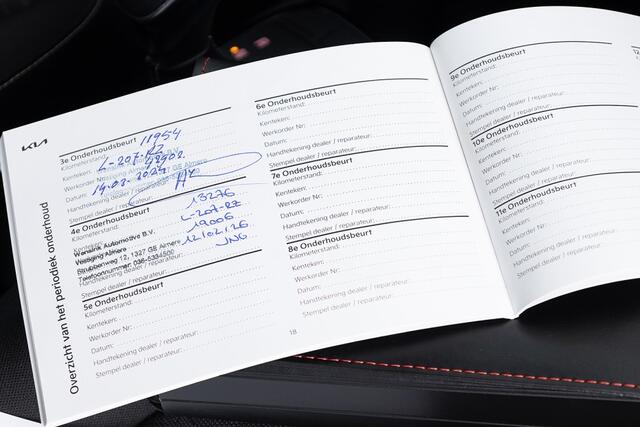 KIA
Overzicht van het periodiek onderhoud
3e Onderhoudsbeurt
Kilometerstand: 11954
Kenteken: L-207-RZ
Werkorder Nr:
Datum:
Handtekening dealer / reparateur:
Stempel dealer / reparateur:
4e Onderhoudsbeurt
Kilometerstand: 13276
Kenteken: L-207-RZ
19006
12/02/26
Wensink Automotive B.V.
Vestiging Almere
12, 1327 GE Almere
Telefoonnummer: 036-5334500
Handtekening dealer / reparateur:
Stempel dealer / reparateur:
5e Onderhoudsbeurt
Kilometerstand:
Kenteken:
Werkorder Nr:
Datum:
Handtekening dealer / reparateur:
Stempel dealer / reparateur:
6e Onderhoudsbeurt
Kilometerstand:
Kenteken:
Werkorder Nr:
Datum:
Handtekening dealer / reparateur:
Stempel dealer / reparateur:
7e Onderhoudsbeurt
Kilometerstand:
Kenteken:
Werkorder Nr:
Datum:
Handtekening dealer / reparateur:
Stempel dealer / reparateur:
8e Onderhoudsbeurt
Kilometerstand:
Kenteken:
Werkorder Nr:
Datum:
Handtekening dealer / reparateur:
Stempel dealer / reparateur:
18
9e Onderhoudsbeurt
Kilometerstand:
Kenteken:
Werkorder Nr:
Datum:
Handtekening dealer / reparateur:
Stempel dealer / reparateur:
10e Onderhoudsbeurt
Kilometerstand:
Kenteken:
Werkorder Nr:
Datum:
Handtekening dealer / reparateur:
Stempel dealer / reparateur:
11e Onderhoudsbeurt
Kilometerstand:
Kenteken:
Werkorder Nr:
Datum:
Handtekening dealer / reparateur:
Stempel dealer / reparateur: